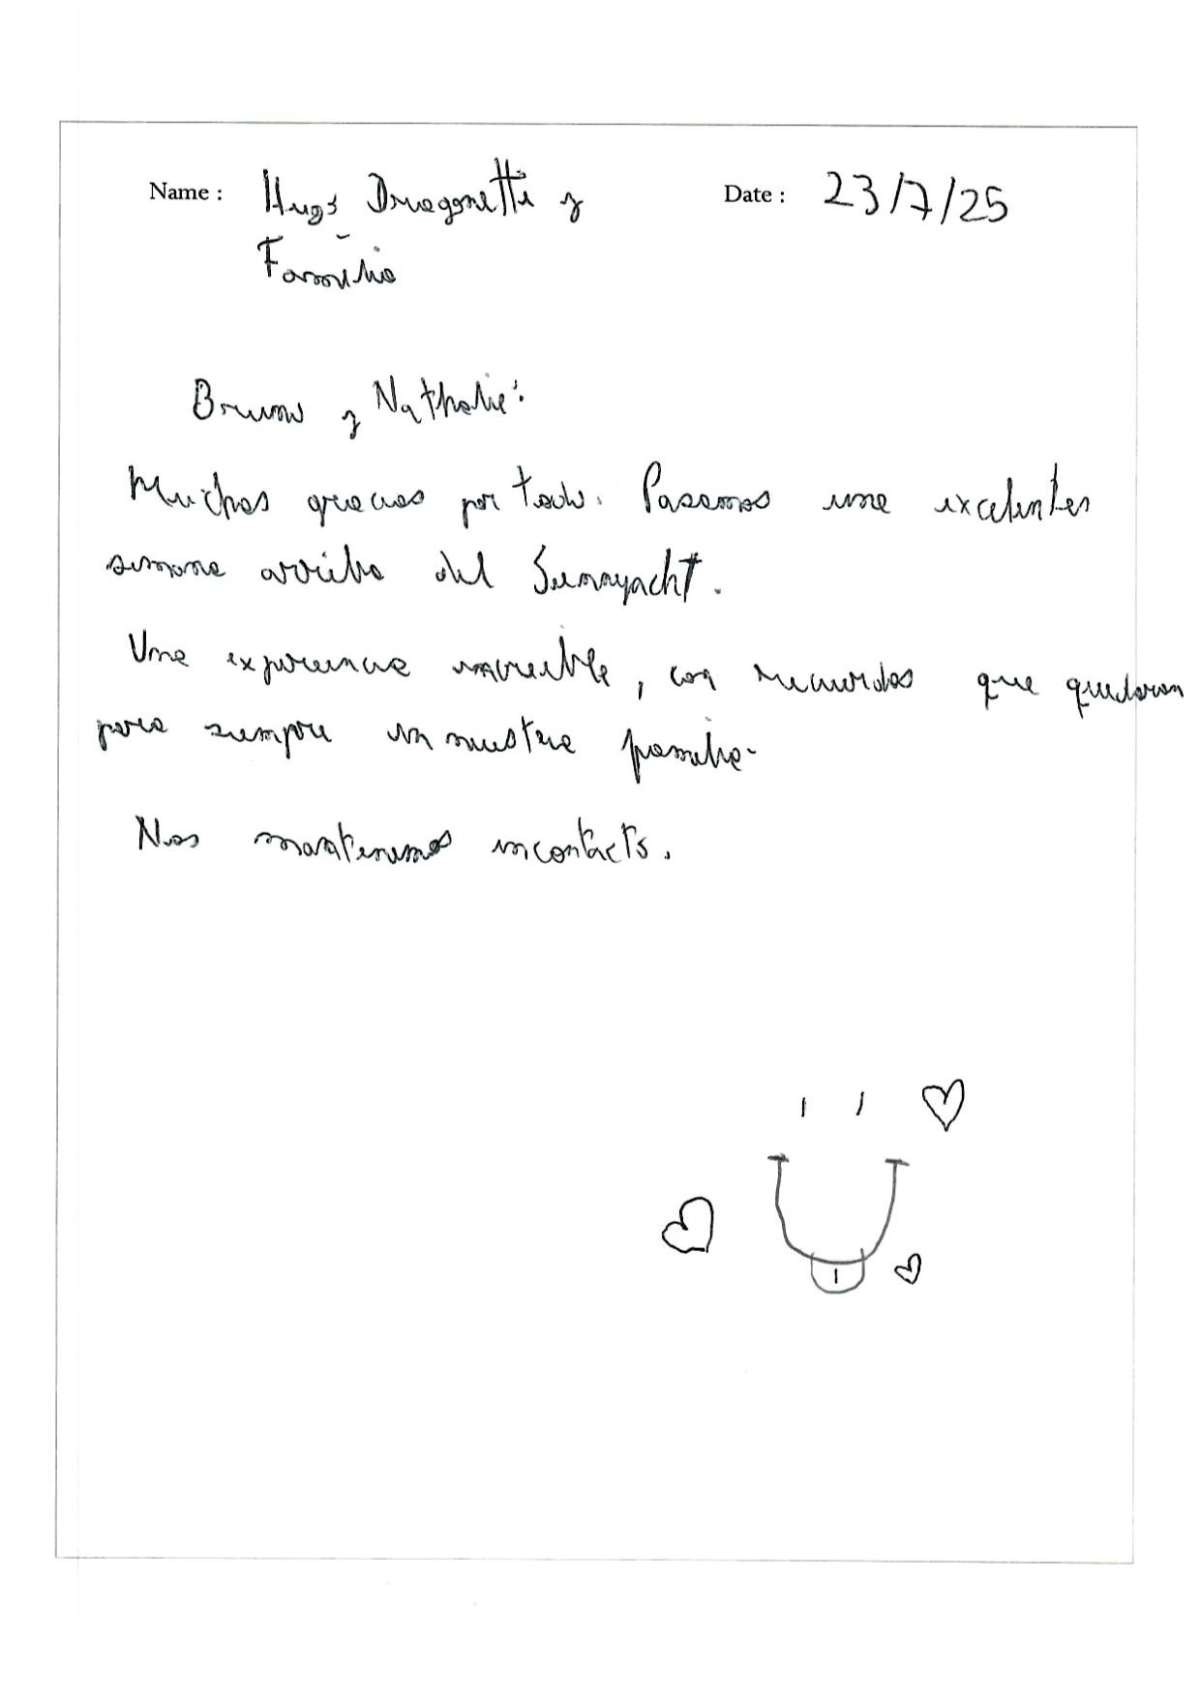 Name : Hugo Dragonetti y Date : 23/7/25
Familia
Bruno y Nathalie:
Muchas gracias por todo. Pasamos una excelentes
semana arriba del Sunnyacht.
Una experiencia increible, con recuerdos que quedaran
para siempre en nuestra familia.
Nos mantenemos en contacto.